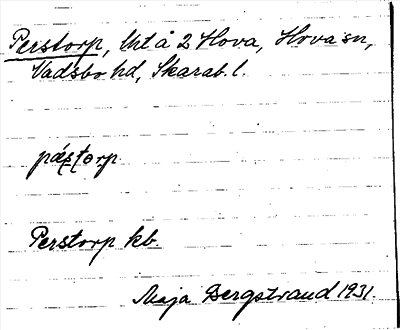 Perstorp, lht å 2 Hova, Hova sn,
Vadsbo hd, Skarab. l.
pæ̀ʂʈorp
Perstorp kb.
Maja Bergstrand 1931.